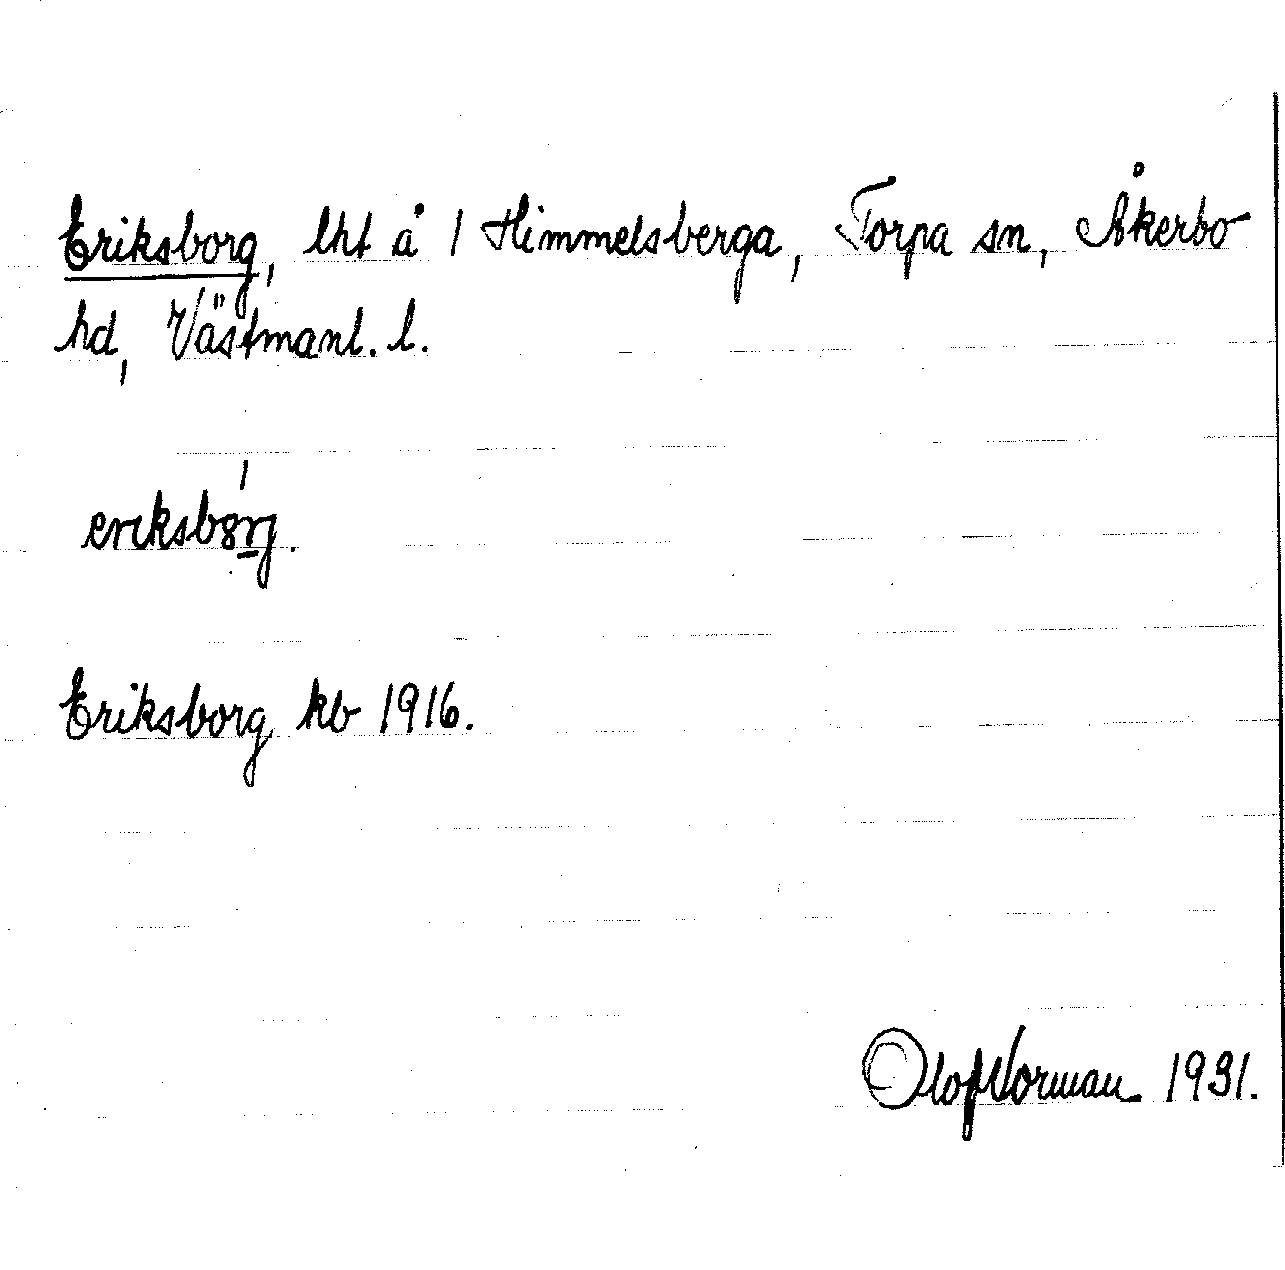 Eriksborg, lht å 1 Himmelsberga, Torpa sn, Åkerbo
hd, Västmanl. l.
Eriksborg kb 1916.
Olof Norman 1931.